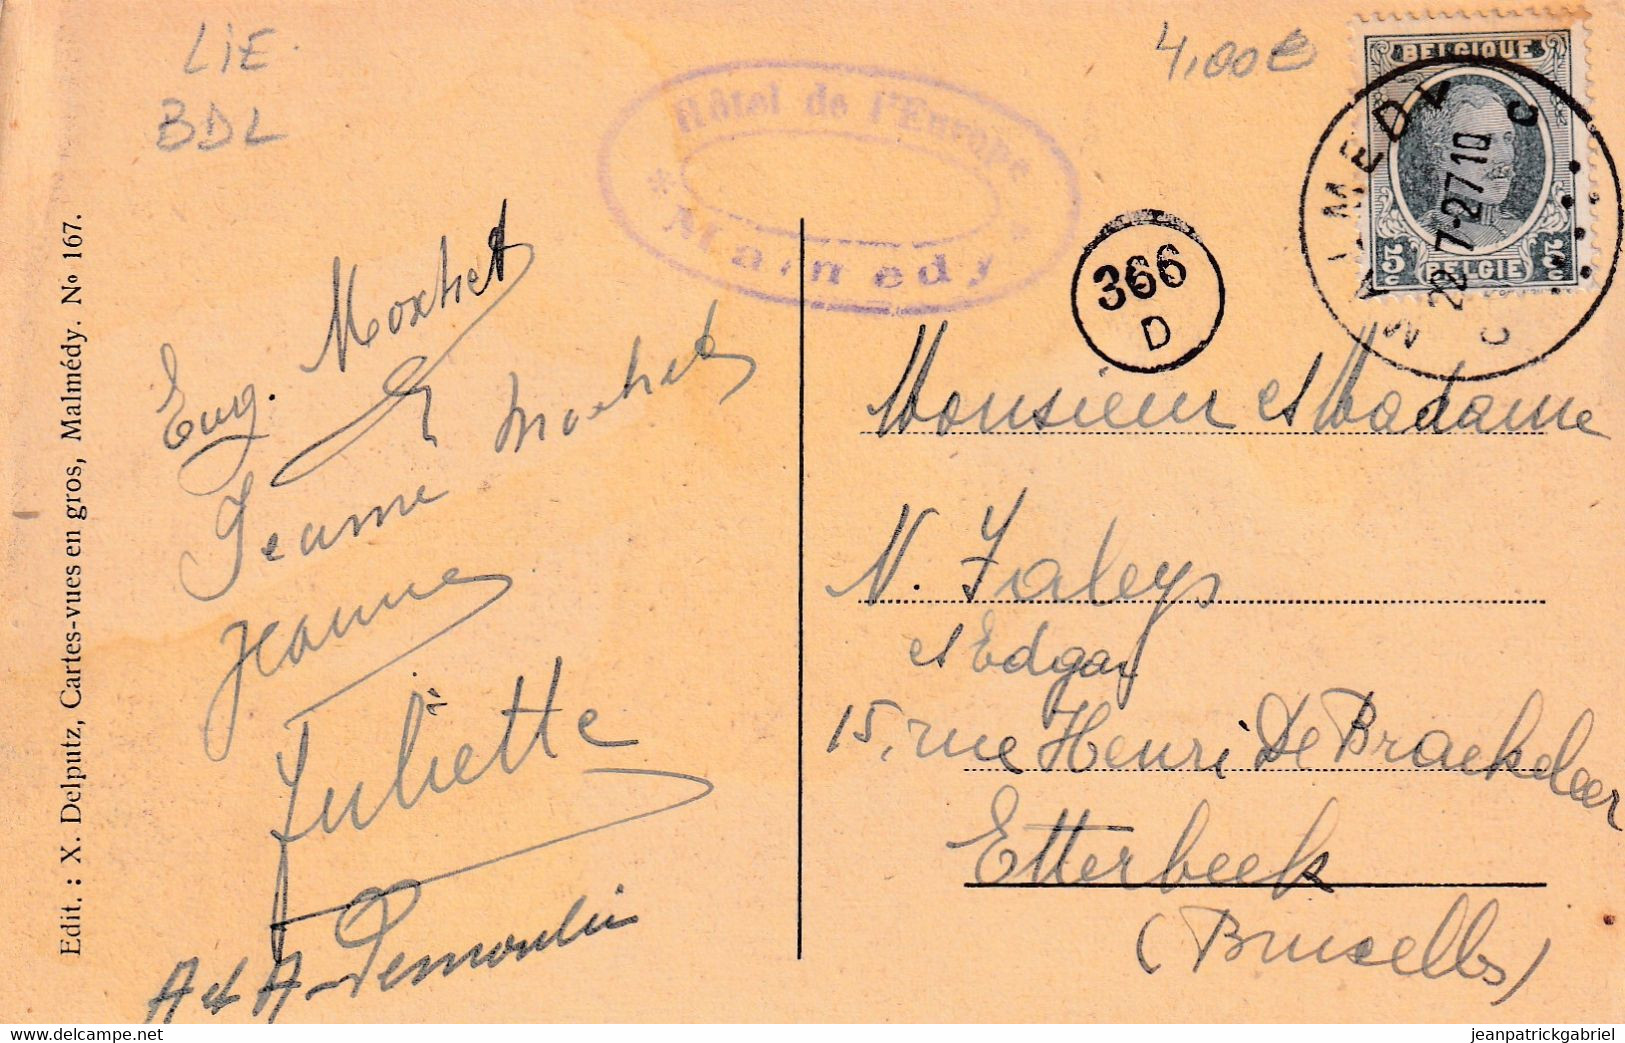 LiE
BDL
4,00€
Hôtel de l'Europe
* Malmedy *
BELGIQUE
5c 5c
BELGIE
MALMEDY
22 7-27 10
C C
366
D
Edit. : X. Delputz, Cartes-vues en gros, Malmédy. Nº 167.
Eug. Moxhet
Jeanne Moxhet
Juliette
A et A-Demoulin
Monsieur et Madame
N. Faleys
et Edgar
15, rue Henri De Braekeleer
Etterbeek
(Bruxelles)
jeanpatrickgabriel
delcampe.net